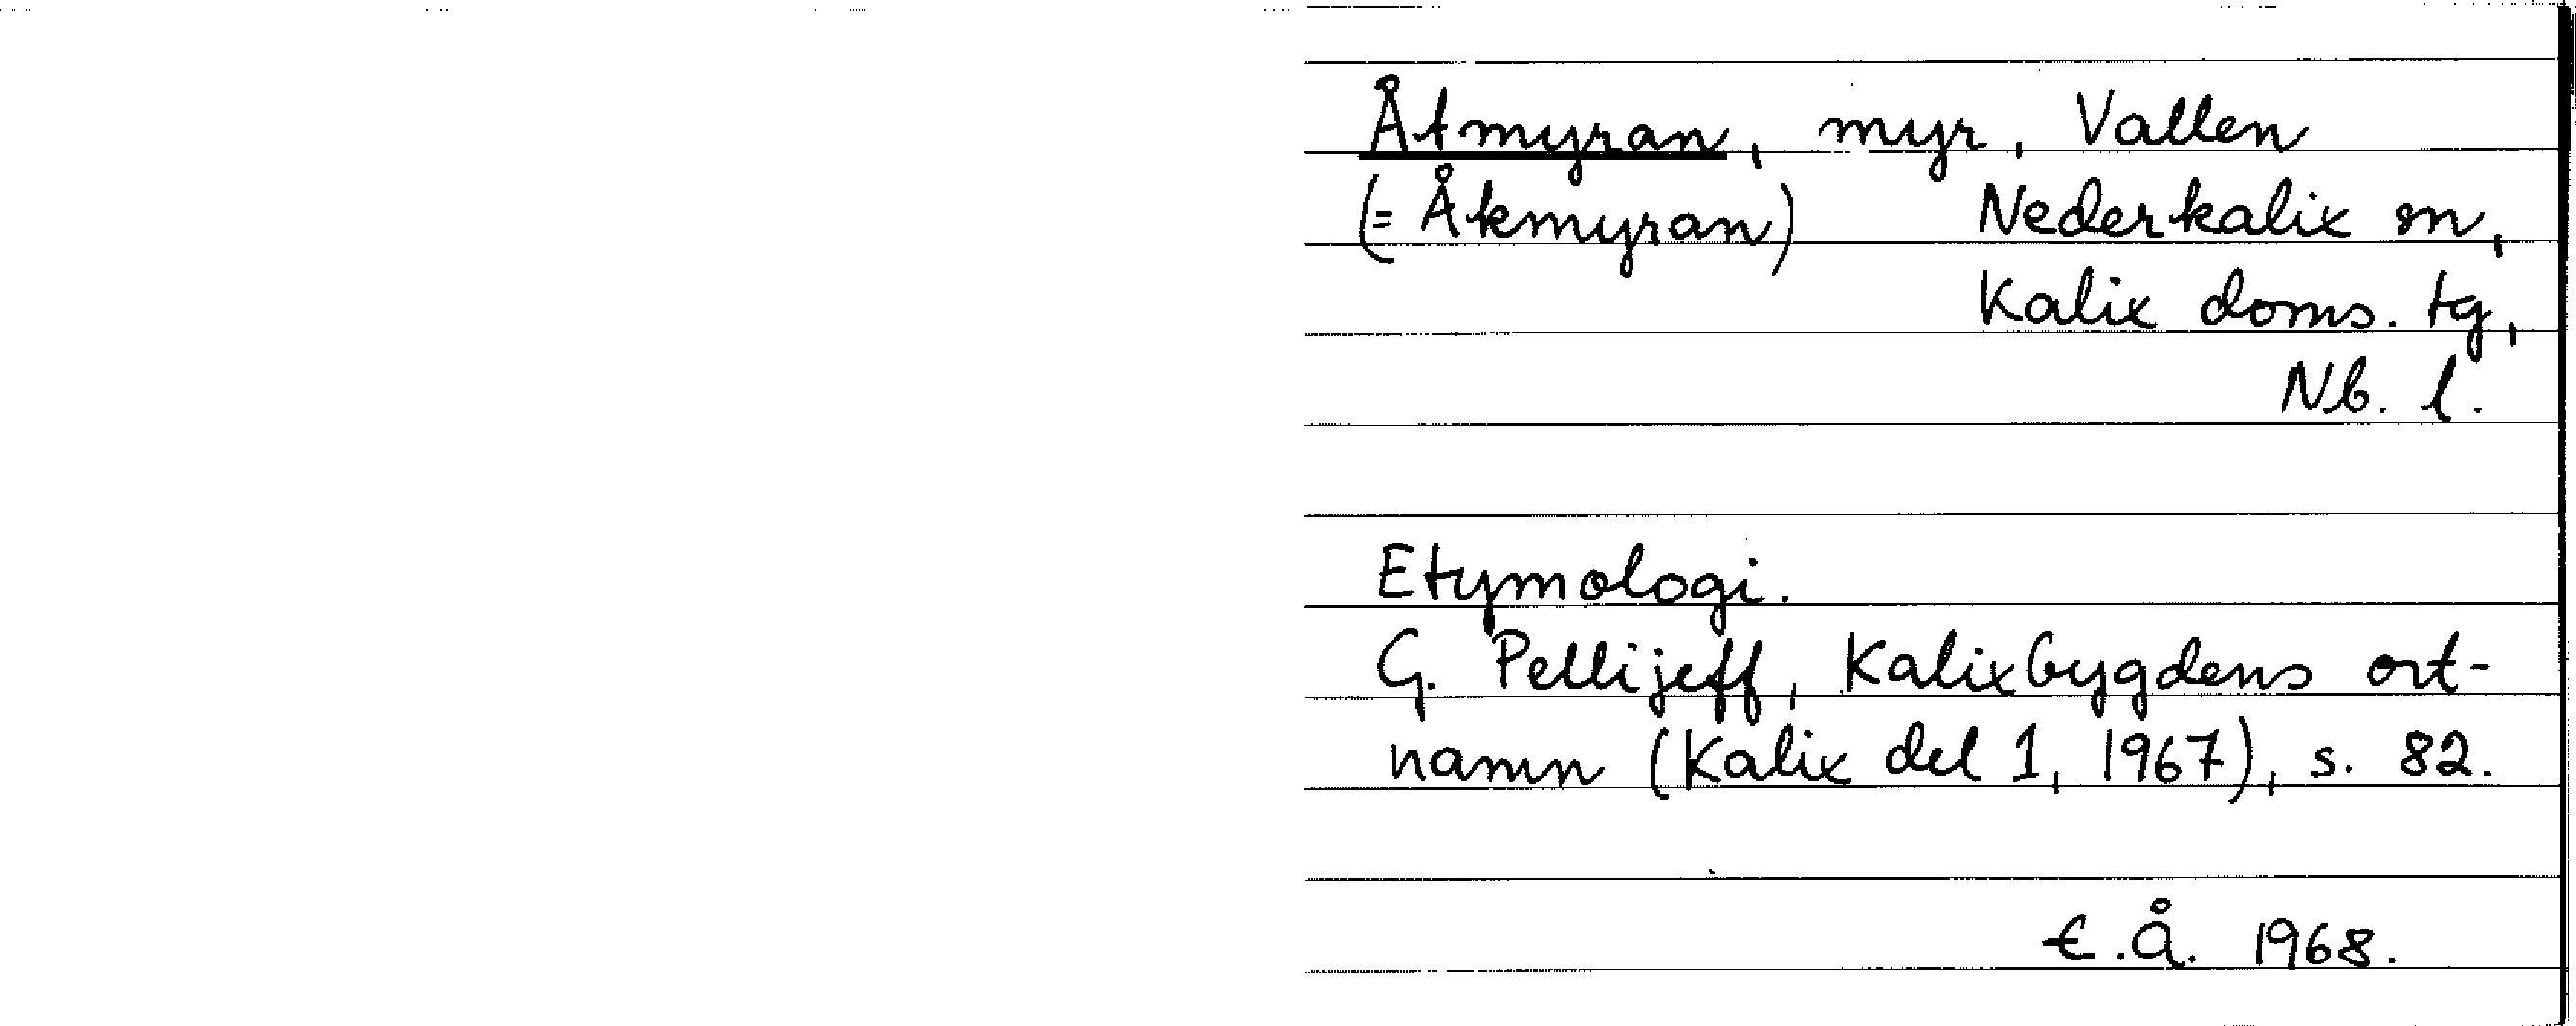 Åtmyran, myr, Vallen
(= Åkmyran) Nederkalix sn,
Kalix doms. tg,
Nb. l.
Etymologi.
G. Pellijeff, Kalixbygdens ort-
namn (Kalix del 1, 1967), s. 82.
E.Å. 1968.